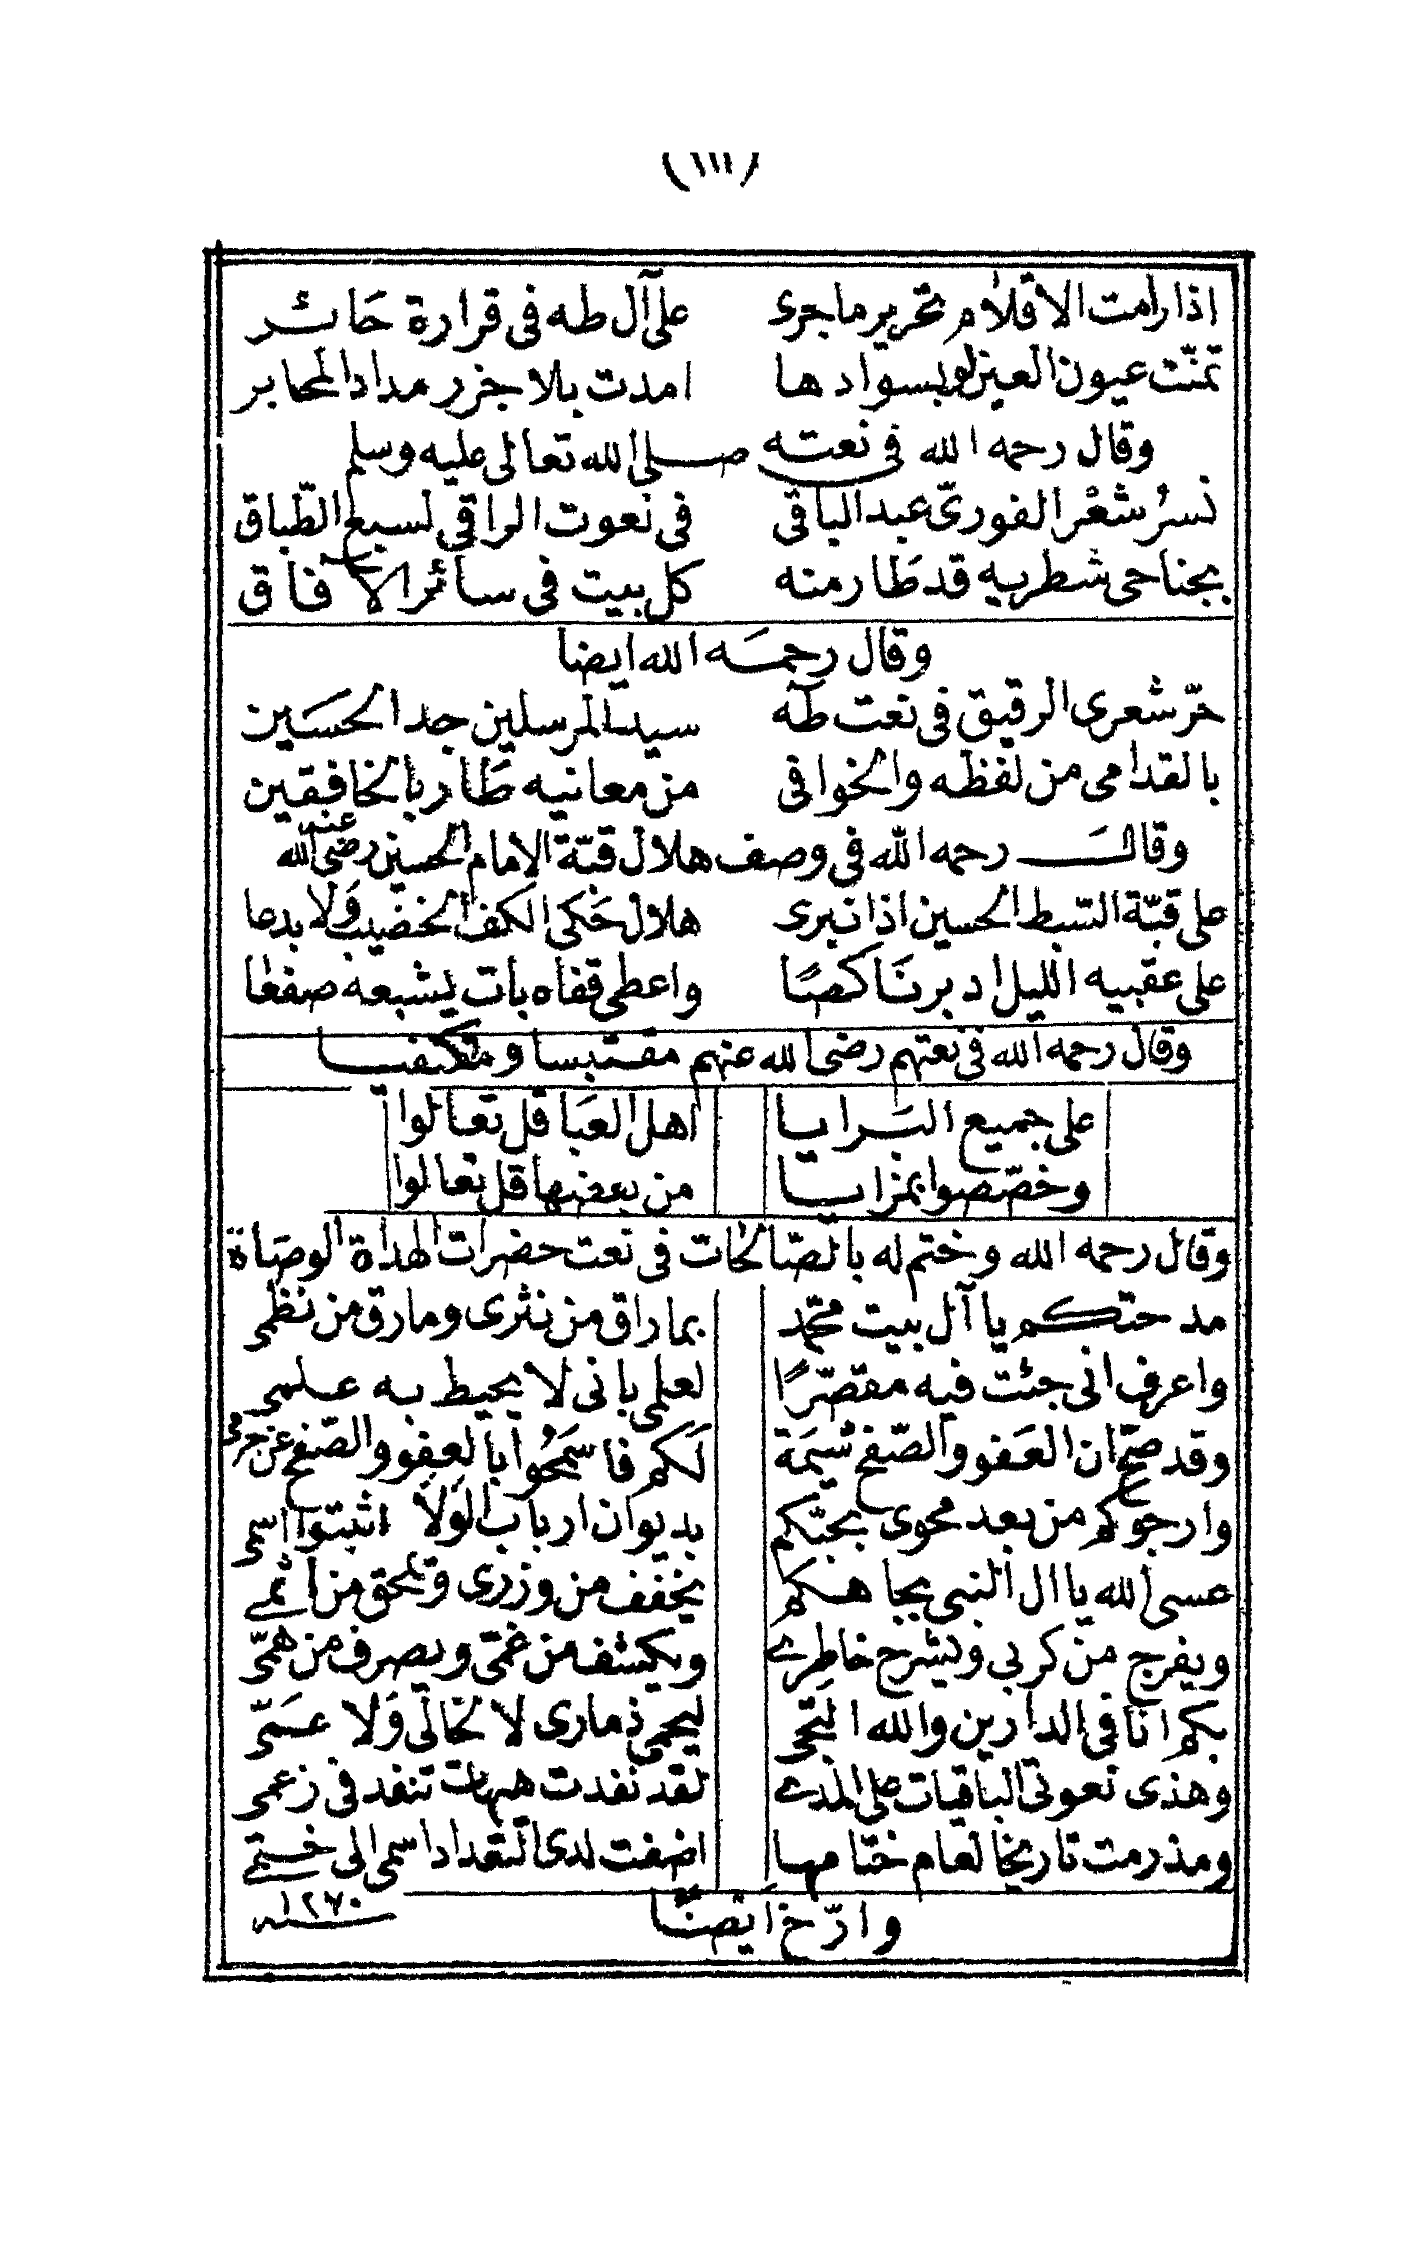 (١١١)
اذا رامت الاقلام تحرير ما جرى على آل طه في قرارة حَائر
تمنّت عيون العين لو بسوادها امدت بلا جزر مداد المحابر
وقال رحمه الله في نعته صلى الله تعالى عليه وسلم
نسرُ شعْر الفوريّ عبد الباقي في نعوت الراقي لسبع الطّباق
بجناحي شطريه قد طَار منه كل بيت في سائر الافاق
وقال رحمَه الله ايضا
حرّ شعرى الرقيق في نعت طه سيد المرسلين جد الحسَين
بالقدامى من لفظه والخوافي من معانيه طَار بالخافقين
وقالَ رحمه الله في وصف هلال قبّة الامام الحسين رضى الله عنه
على قبّة السّبط الحسين اذا نبرى هلال حَكى الكف الخضيب ولا بدعا
على عقبيه الليل ادبر نَاكصًا واعطى قفاه بات يشبعه صفعا
وقال رحمه الله في نعتهم رضى الله عنهم مقتبسا ومكتفيا
على جميع البَرايا اهل العبَا قل تعالوا
وخصّصوا بمزايا من بعضها قل تعالوا
وقال رحمه الله وختم له بالصّالحات في نعت حضرات الهداة الوصَاة
مدحتكم يا آل بيت محمّد بما راق من نثرى وما رق من نظمى
واعرف انى جئت فيه مقصّرًا لعلمى بانى لا يحيط به علمى
وقد صحّ ان العَفو والصّفح شيمَة لَكم فاسمَحُوا بالعفو والصّفح عن جرمى
وارجوكم من بعد محوى بحبّكم بديوان ارباب الوَلَا اثبتوا اسمى
عسى الله يا ال النبى بجاهكم يخفف من وزرى وتمحق من اثمے
ويفرج من كربى ويشرح خاطرے ويكشف من غمّى ويصرف من همّى
بكم انَا فى الدارين والله التجى ليحمى ذمارى لا لخالى وَلا عمّى
وهذى نعوتى الباقيات على المدے لقد نفدت هيهات تنفد فى زعمى
ومذ رمت تاريخا لعام ختامها اضفت لدى التعداد اسمى الى ختمے
وارّخ ايْضًا سنة ١٢٧٠